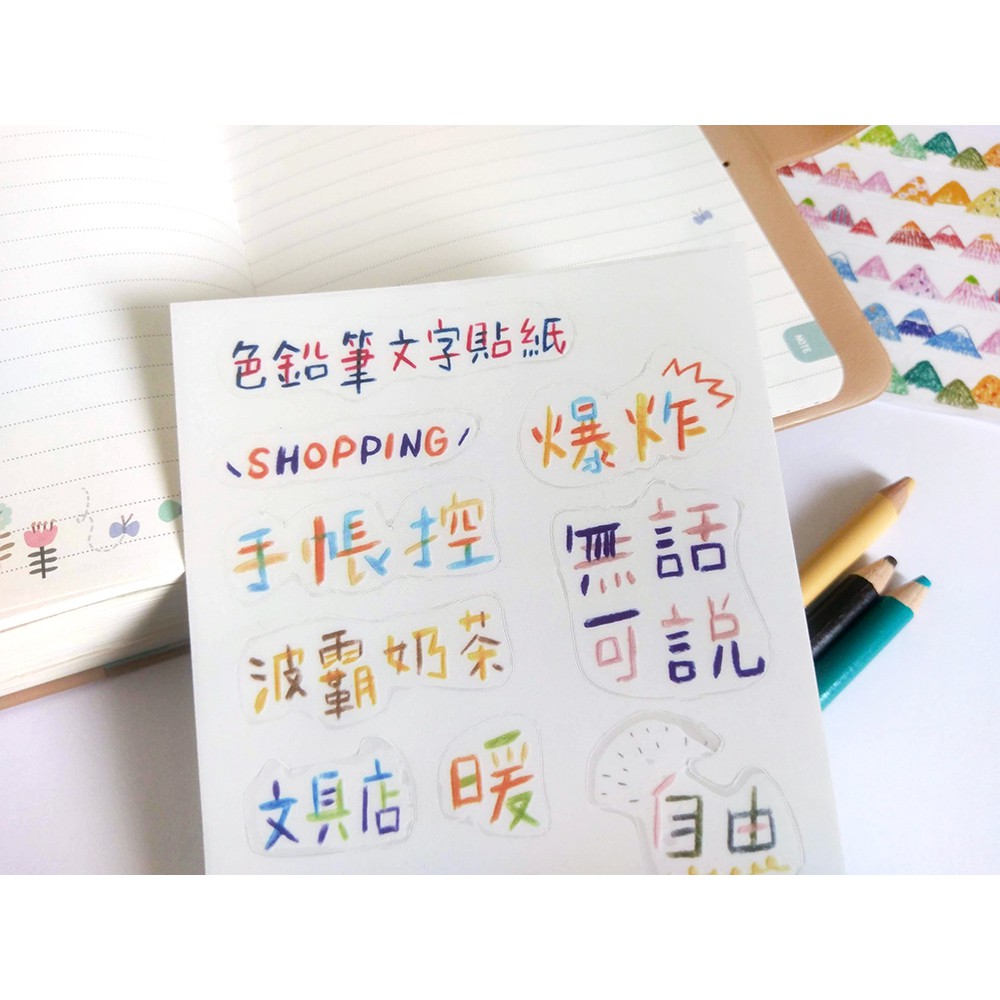 色鉛筆文字貼紙
SHOPPING
爆炸
手帳控
無話
可說
波霸奶茶
文具店
暖
自由
NOTE